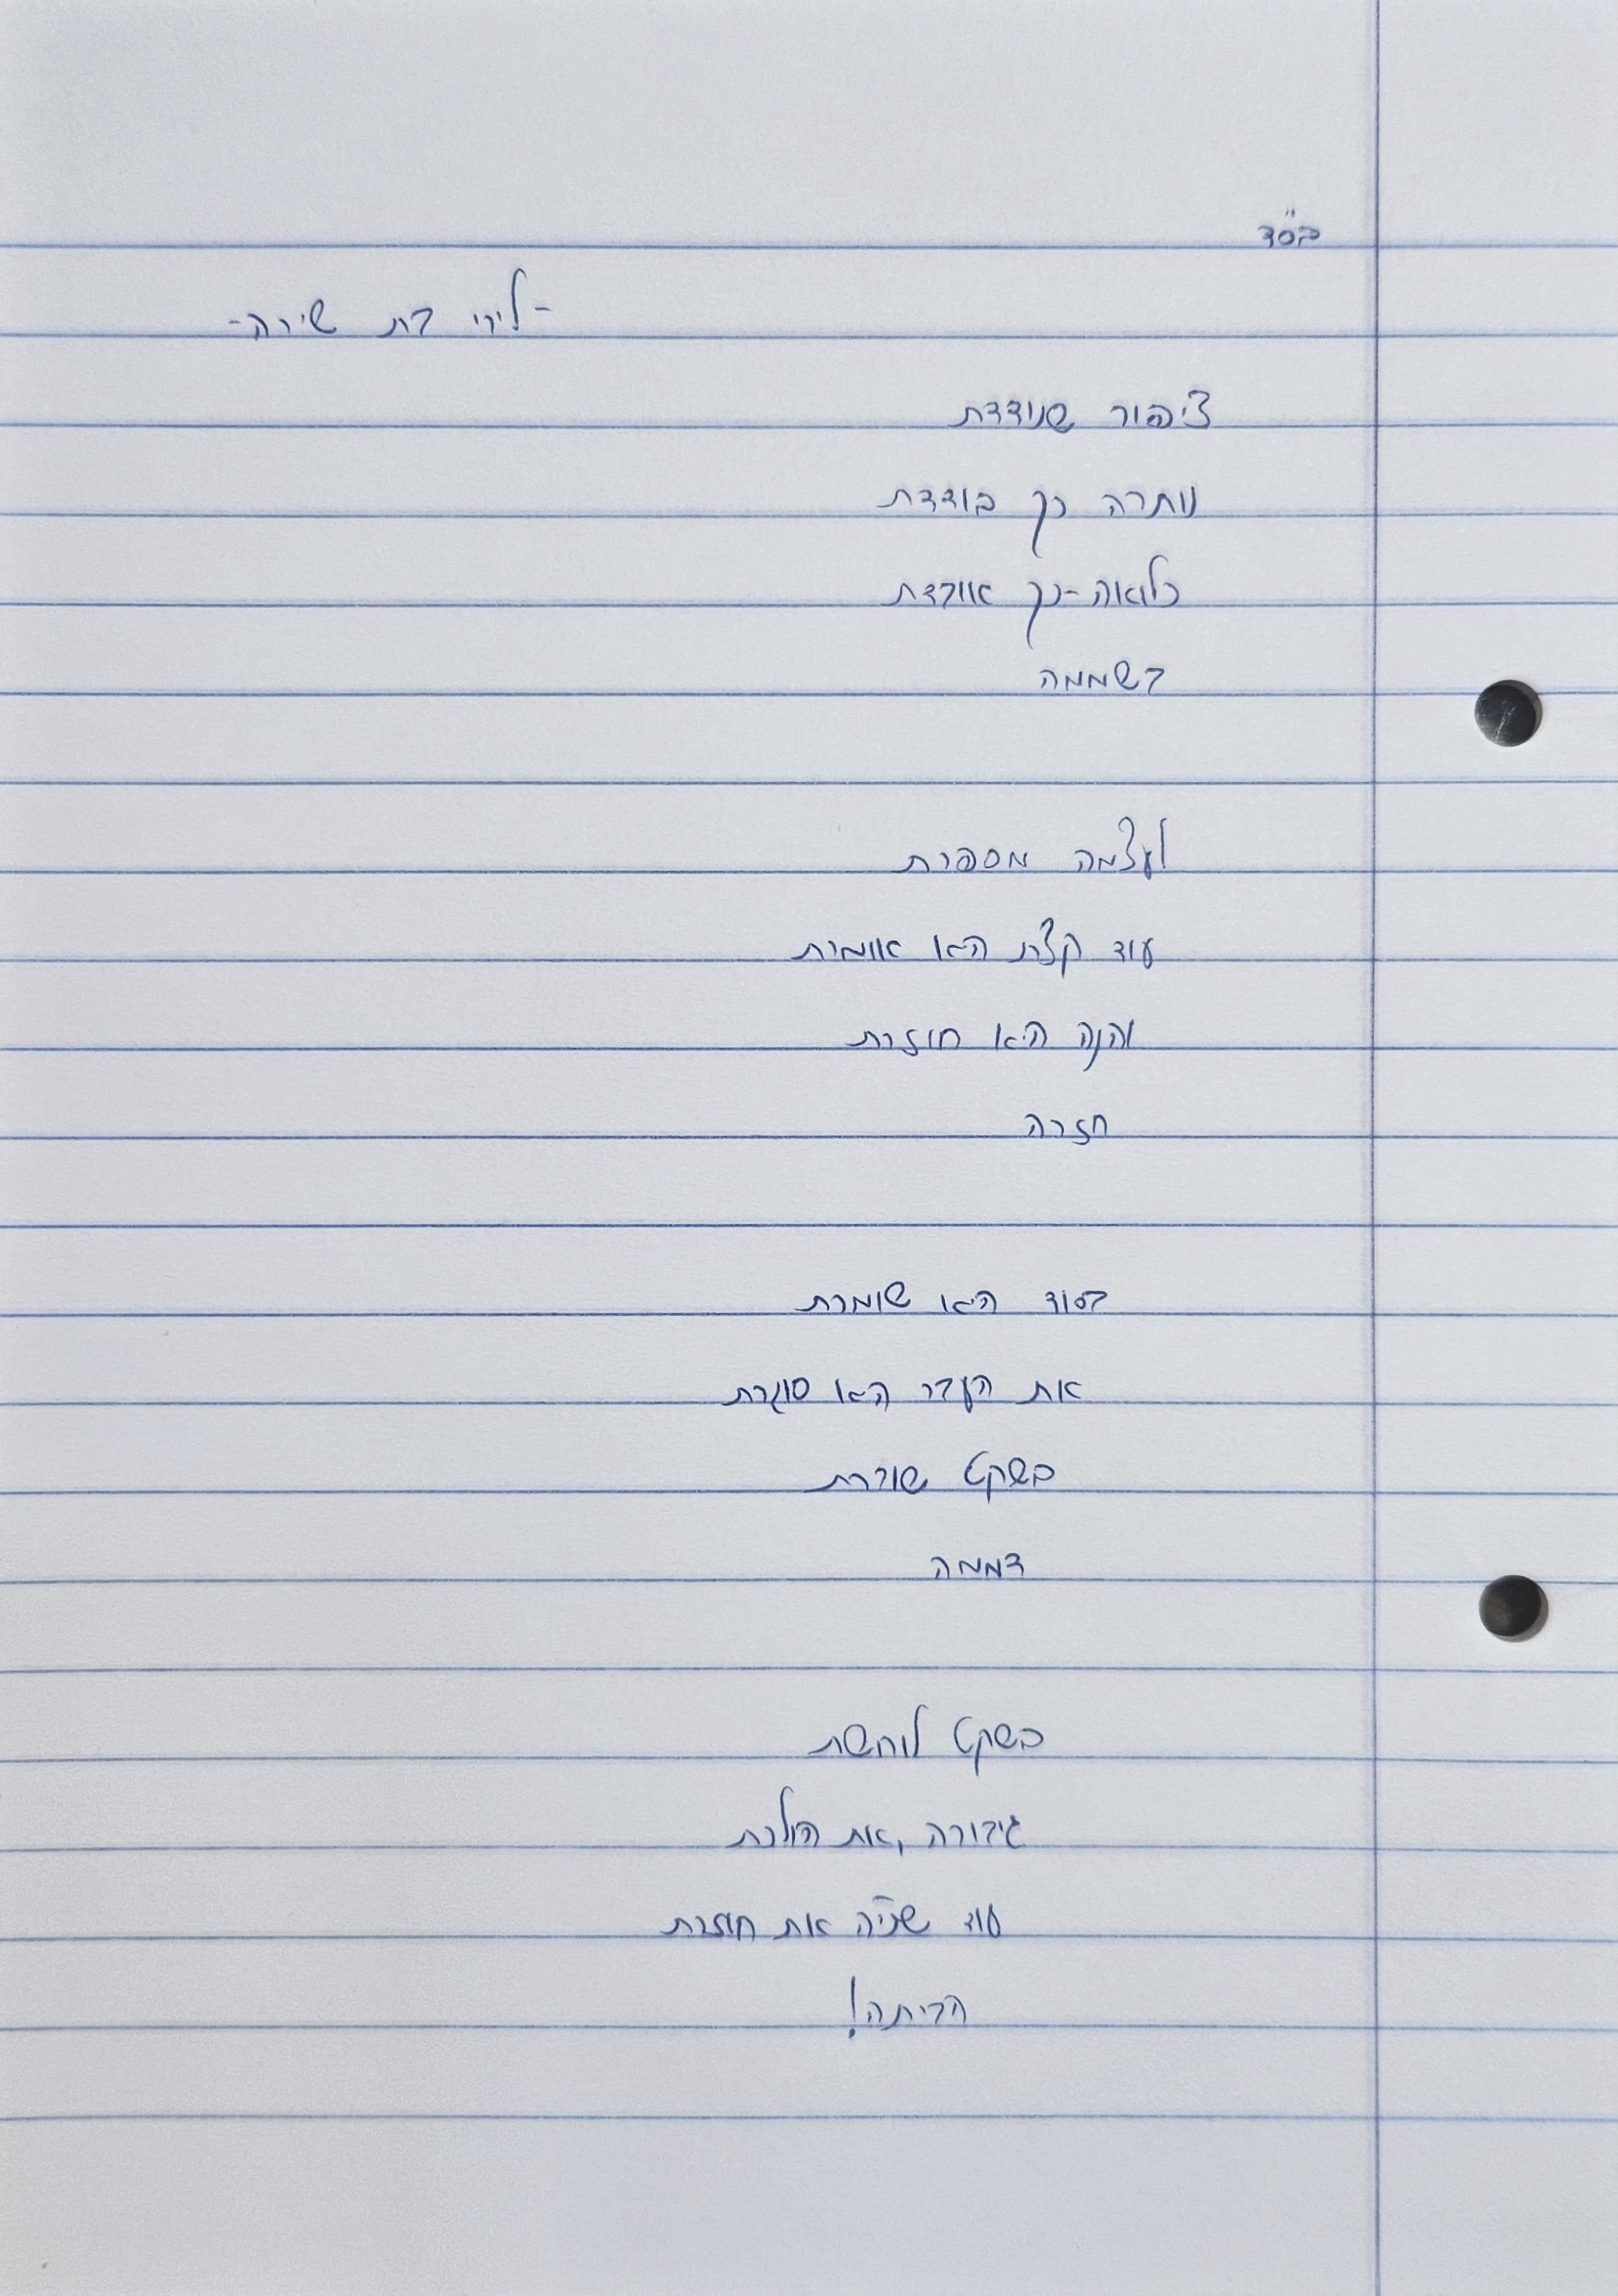 בס"ד
-לירי בת שירה-
ציפור שנודדת
נותרה כך בודדת
כלואה-כך אובדת
בשממה
לעצמה מספרת
עוד קצת היא אומרת
והנה היא חוזרת
חזרה
בסוד היא שומרת
את העבר היא סוגרת
בשקט שוררת
דממה
בשקט לוחשת
גיבורה, את הולכת
עוד שניה את חוזרת
הביתה!